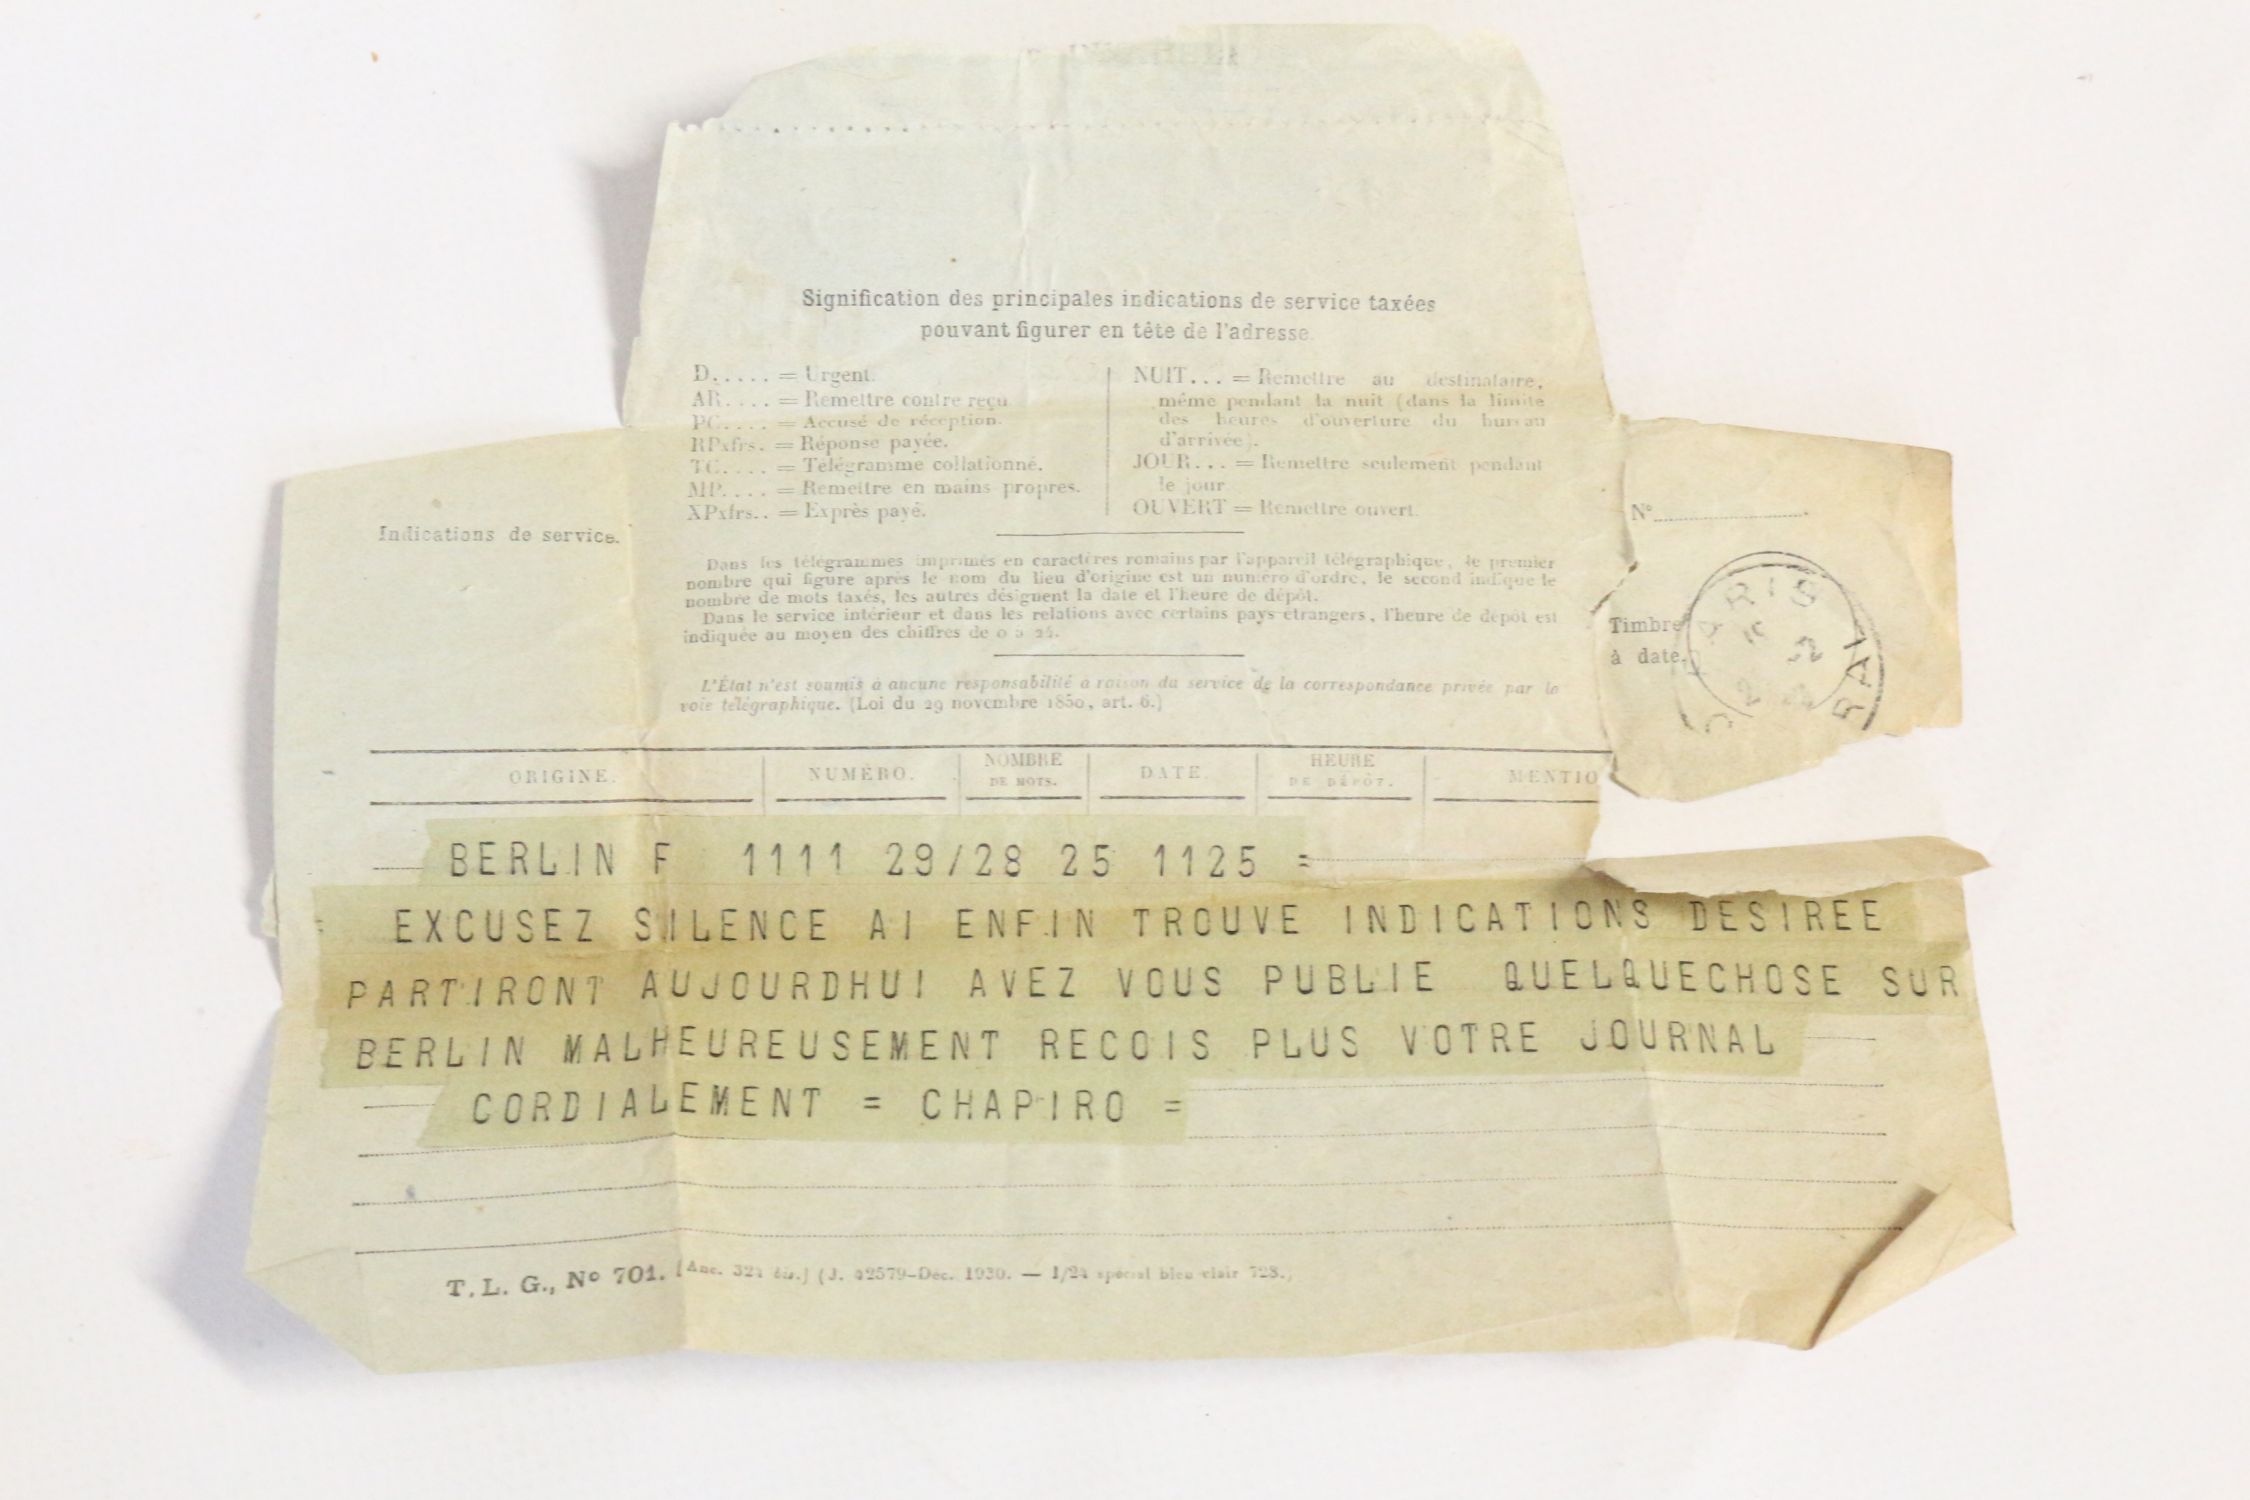 Signification des principales indications de service taxées
pouvant figurer en tête de l'adresse.
D..... = Urgent.
AR.... = Remettre contre reçu.
PC.... = Accusé de réception.
RPxfrs. = Réponse payée.
TC.... = Télégramme collationné.
MP.... = Remettre en mains propres.
XPxfrs.. = Exprès payé.
NUIT... = Remettre au destinataire,
même pendant la nuit (dans la limite
des heures d'ouverture du bureau
d'arrivée).
JOUR... = Remettre seulement pendant
le jour.
OUVERT = Remettre ouvert.
Indications de service.
N°
Dans les télégrammes imprimés en caractères romains par l'appareil télégraphique, le premier
nombre qui figure après le nom du lieu d'origine est un numéro d'ordre, le second indique le
nombre de mots taxés, les autres désignent la date et l'heure de dépôt.
Dans le service intérieur et dans les relations avec certains pays étrangers, l'heure de dépôt est
indiquée au moyen des chiffres de 0 à 24.
Timbre
à date.
PARIS
L'État n'est soumis à aucune responsabilité à raison du service de la correspondance privée par la
voie télégraphique. (Loi du 29 novembre 1850, art. 6.)
ORIGINE. NUMÉRO. NOMBRE DE MOTS. DATE. HEURE DE DÉPÔT. MENTIO
BERLIN F 1111 29/28 25 1125 =
= EXCUSEZ SILENCE AI ENFIN TROUVE INDICATIONS DESIREE
PARTIRONT AUJOURDHUI AVEZ VOUS PUBLIE QUELQUECHOSE SUR
BERLIN MALHEUREUSEMENT RECOIS PLUS VOTRE JOURNAL
CORDIALEMENT = CHAPIRO =
T. L. G., N° 701. (Anc. 321 bis.) (J. 42579-Déc. 1930. — 1/24 spécial bleu clair 728.)